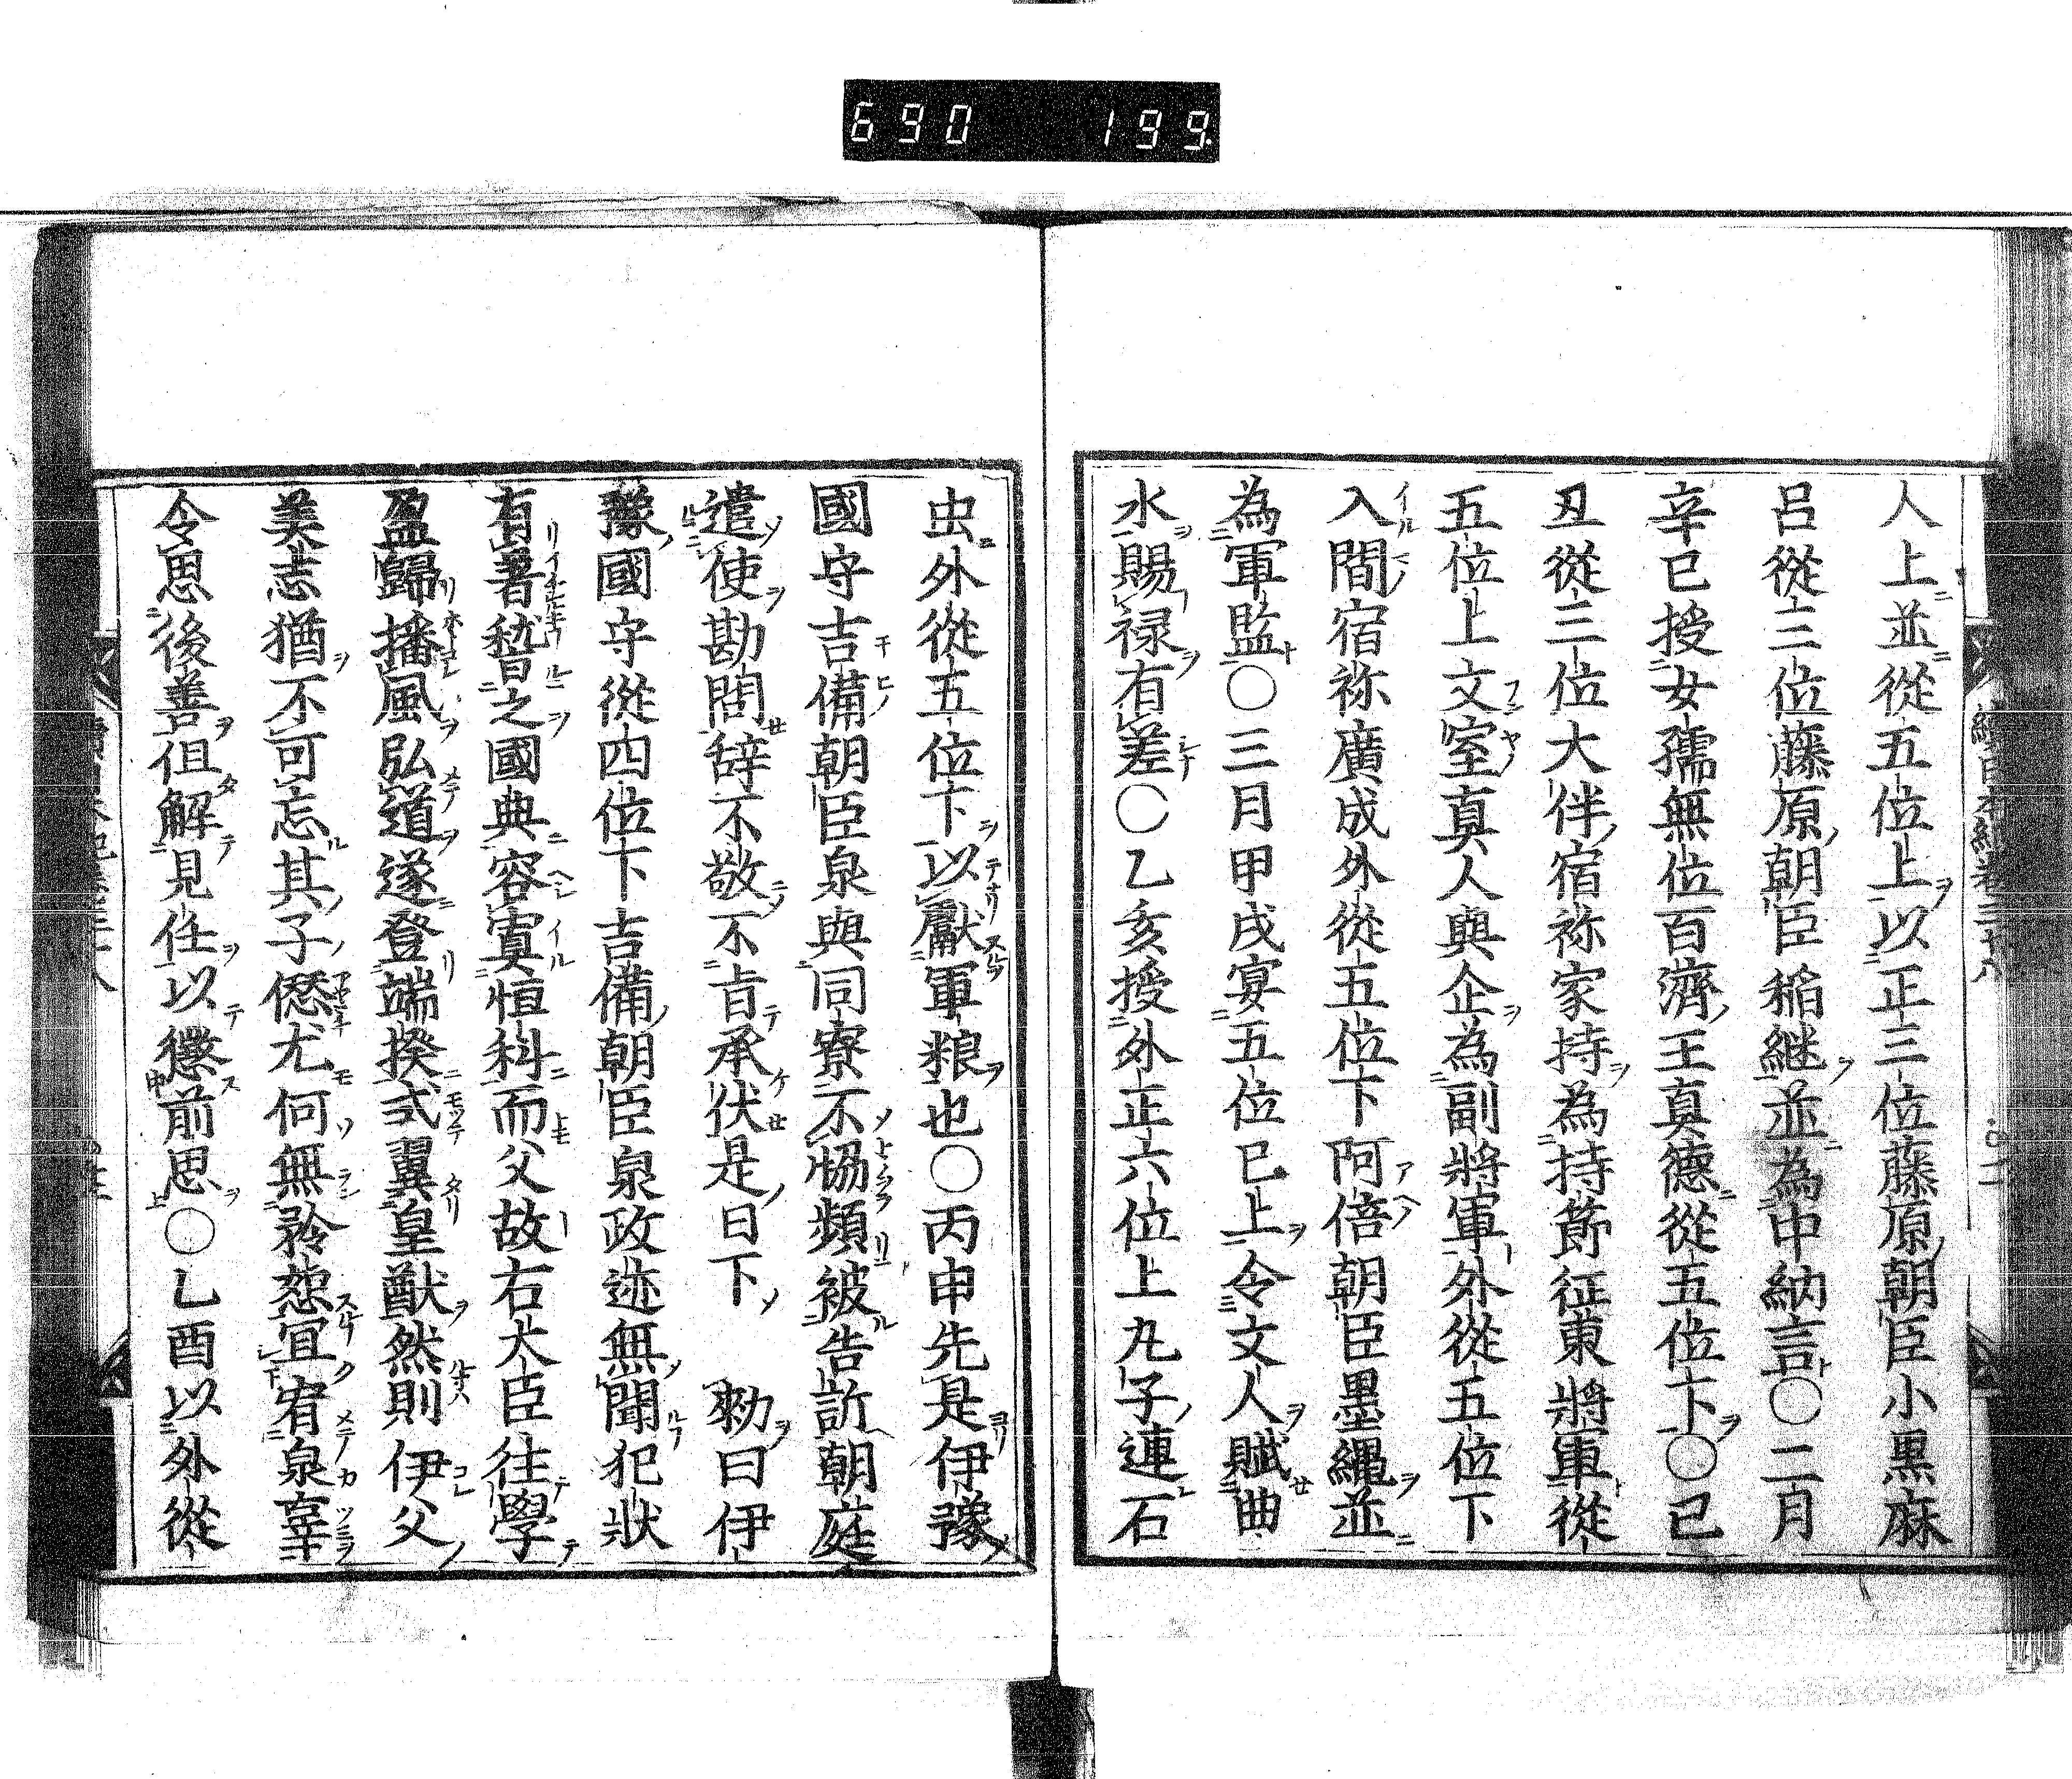 690 199
人上並從五位上以正三位藤原朝臣小黑麻
呂從三位藤原朝臣稲継並為中納言〇二月
辛巳授女孺無位百濟王真德從五位下〇己
丑從三位大伴宿祢家持為持節征東將軍從
五位上文室真人與企為副將軍外從五位下
入間宿祢廣成外從五位下阿倍朝臣墨繩並
為軍監〇三月甲戌宴五位已上令文人賦曲
水賜禄有差〇乙亥授外正六位上丸子連石
虫外從五位下以獻軍粮也〇丙申先是伊豫
國守吉備朝臣泉與同寮不恊頻被告訴朝庭
遣使勘問辞不敬不肯承伏是日下 勅曰伊
豫國守從四位下吉備朝臣泉政迹無聞犯狀
有著稽之國典容寘恒科而父故右大臣往學
盈歸播風弘道遂登端揆式翼皇猷然則伊父
美志猶不可忘其子愆尤何無矜恕宜宥泉辜
令思後善但解見任以懲前思〇乙酉以外從